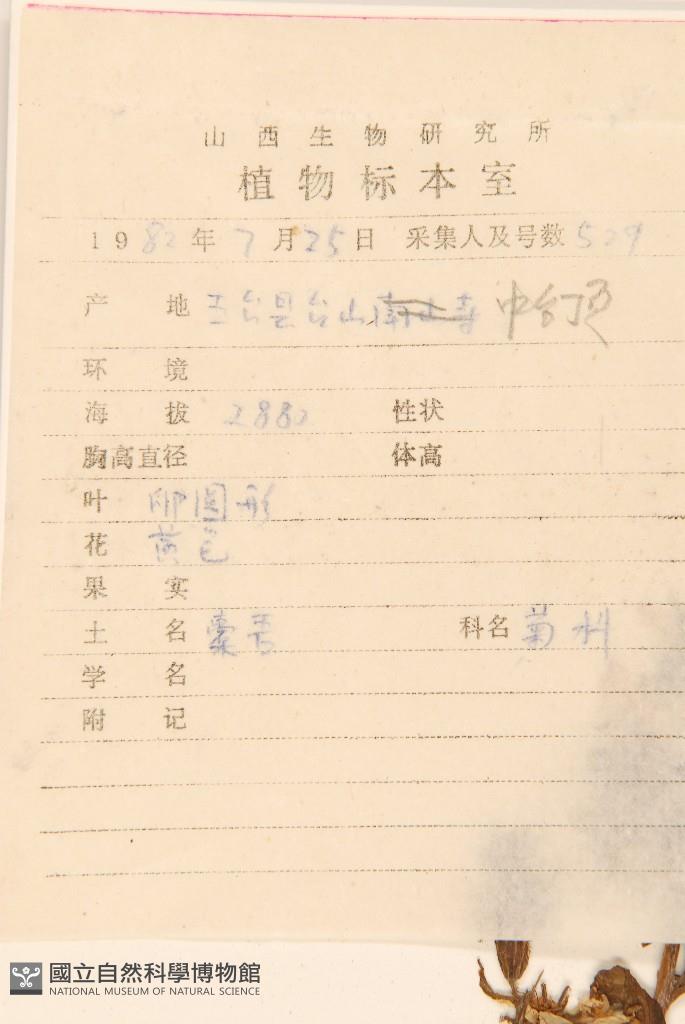 山西生物研究所
植物标本室
1982年7月25日 采集人及号数 529
产地 五台县台山南山寺 中台顶
环境
海拔 2880 性状
胸高直径 体高
叶 卵圆形
花 黄色
果实
土名 橐吾 科名 菊科
学名
附记
國立自然科學博物館
NATIONAL MUSEUM OF NATURAL SCIENCE